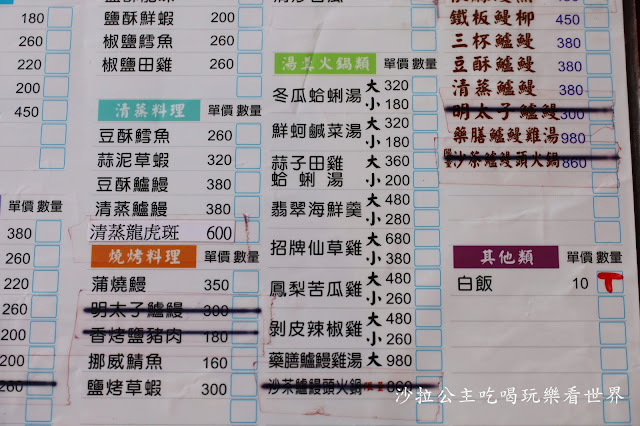 180
260
220
200
450
單價 數量
380
220
260
200
200
260
鹽酥鮮蝦 200
椒鹽鱈魚 260
椒鹽田雞 200
清蒸料理 單價 數量
豆酥鱈魚 260
蒜泥草蝦 320
豆酥鱸鰻 380
清蒸鱸鰻 380
清蒸龍虎斑 600
燒烤料理 單價 數量
蒲燒鰻 350
明太子鱸鰻 300
香烤鹽豬肉 180
挪威鯖魚 160
鹽烤草蝦 300
單價 數量
冬瓜蛤蜊湯 大 320
小 180
鮮蚵鹹菜湯 大 340
小 180
蒜子田雞蛤蜊湯 大 360
小 200
翡翠海鮮羹 大 480
小 280
招牌仙草雞 大 680
小 380
鳳梨苦瓜雞 大 480
小 260
剝皮辣椒雞 大 480
小 260
藥膳鱸鰻雞湯 大 980
沙茶鱸鰻頭火鍋
鐵板鰻柳 450
三杯鱸鰻 380
豆酥鱸鰻 380
清蒸鱸鰻 380
明太子鱸鰻 300
藥膳鱸鰻雞湯 980
沙茶鱸鰻頭火鍋 860
其他類 單價 數量
白飯 10
沙拉公主吃喝玩樂看世界